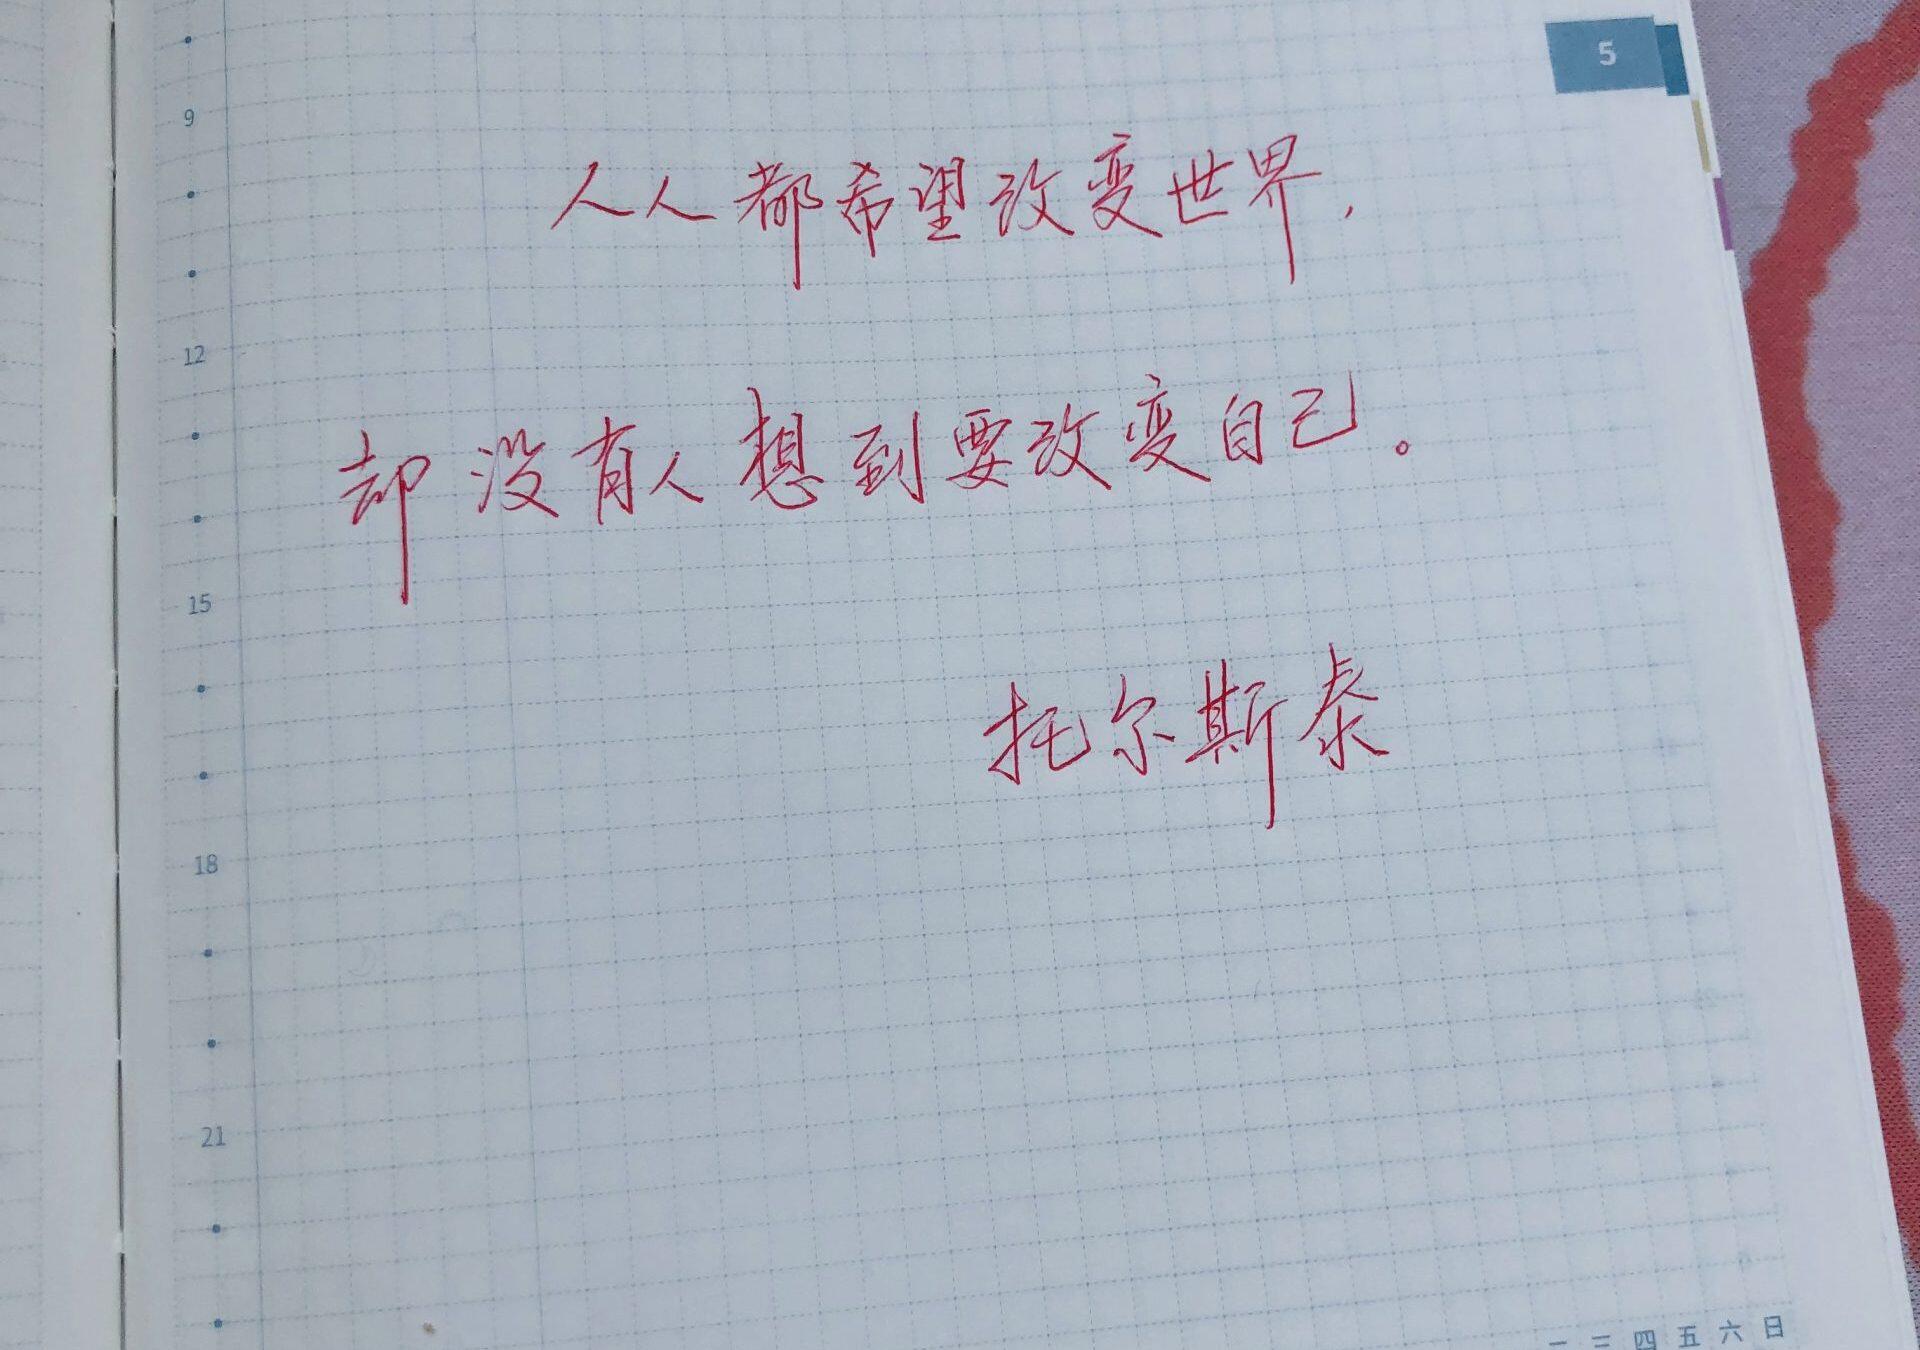 5
9
人人都希望改变世界，
12
却没有人想到要改变自己。
15
托尔斯泰
18
21
一 二 三 四 五 六 日